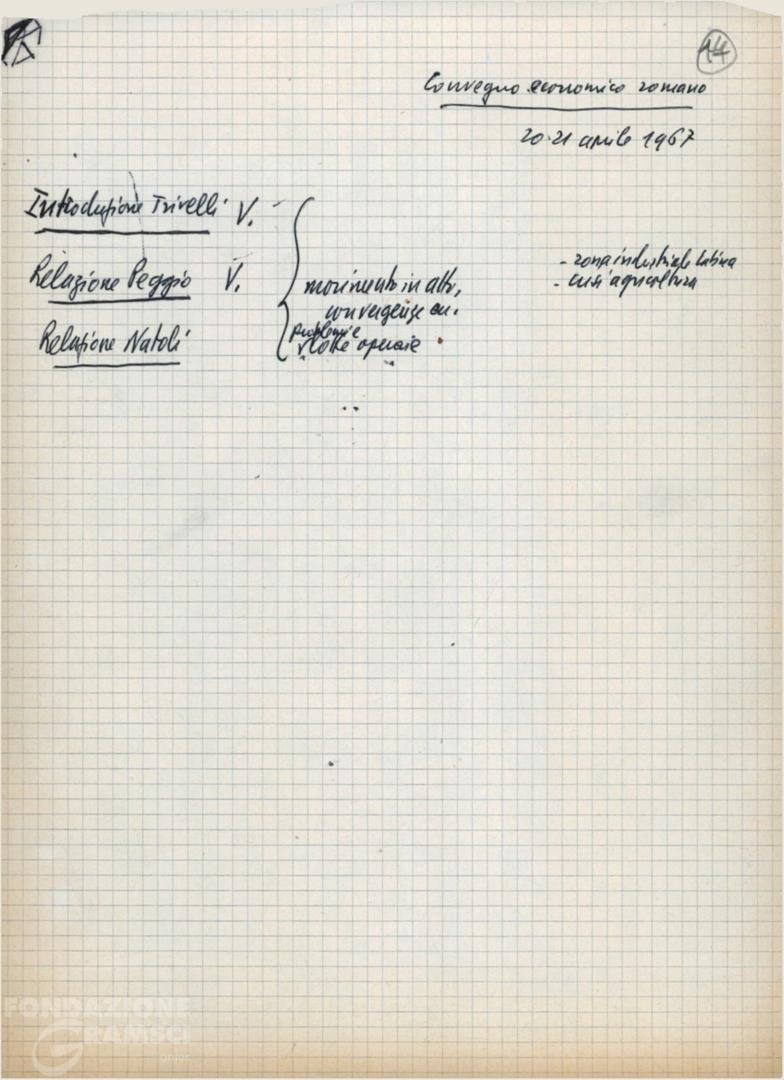 14
Convegno economico romano
20-21 aprile 1967
Introduzione Trivelli V.
Relazione Peggio V.
Relazione Natoli
movimento in atto,
convergenze
problemi e
lotte operaie
- zona industriale Latina
- crisi agricoltura
FONDAZIONE
GRAMSCI